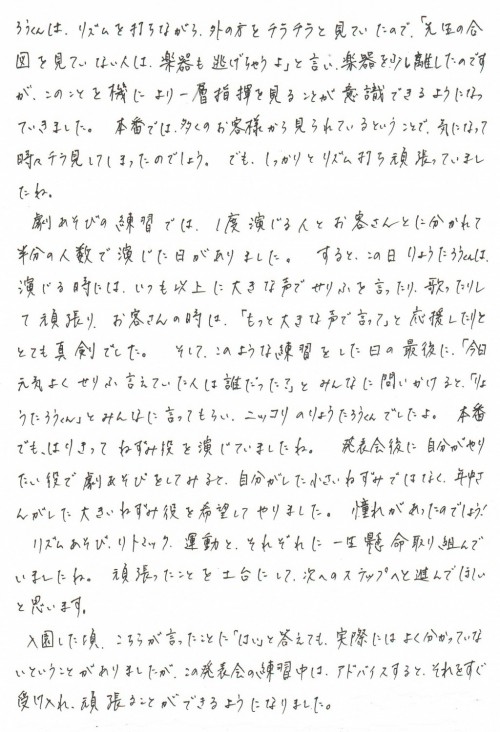 ろうくんは、リズムを打ちながら、外の方をチラチラと見ていたので、「先生の合
図を見ていない人は、楽器も逃げちゃうよ」と言い、楽器を少し離したのです
が、このことを機により一層指揮を見ることが意識できるようになっ
ていきました。 本番では、多くのお客様から見られているということで、気になって
時々チラ見してしまったのでしょう。 でも、しっかりとリズム打ち頑張っていまし
たね。
劇あそびの練習では、1度演じる人とお客さんとに分かれて
半分の人数で演じた日がありました。 すると、この日りょうたろうくんは、
演じる時には、いつも以上に大きな声でせりふを言ったり、歌ったりし
て頑張り、お客さんの時は、「もっと大きな声で言って」と応援したりと
とても真剣でした。 そして、このような練習をした日の最後に、「今日
元気よくせりふ言えていた人は誰だった?」とみんなに問いかけると、「りょ
うたろうくん」とみんなに言ってもらい、ニッコリのりょうたろうくんでしたよ。 本番
でも、はりきってねずみ役を演じていましたね。 発表会後に自分がやり
たい役で劇あそびをしてみると、自分がした小さいねずみではなく、年中さ
んがした大きいねずみ役を希望してやりました。 憧れがあったのでしょう!
リズムあそび、リトミック、運動と、それぞれに一生懸命取り組んで
いましたね。 頑張ったことを土台にして、次へのステップへと進んでほしい
と思います。
入園した頃、こちらが言ったことに「はい」と答えても、実際にはよく分かっていな
いということがありましたが、この発表会の練習中は、アドバイスすると、それをすぐ
受け入れ、頑張ることができるようになりました。